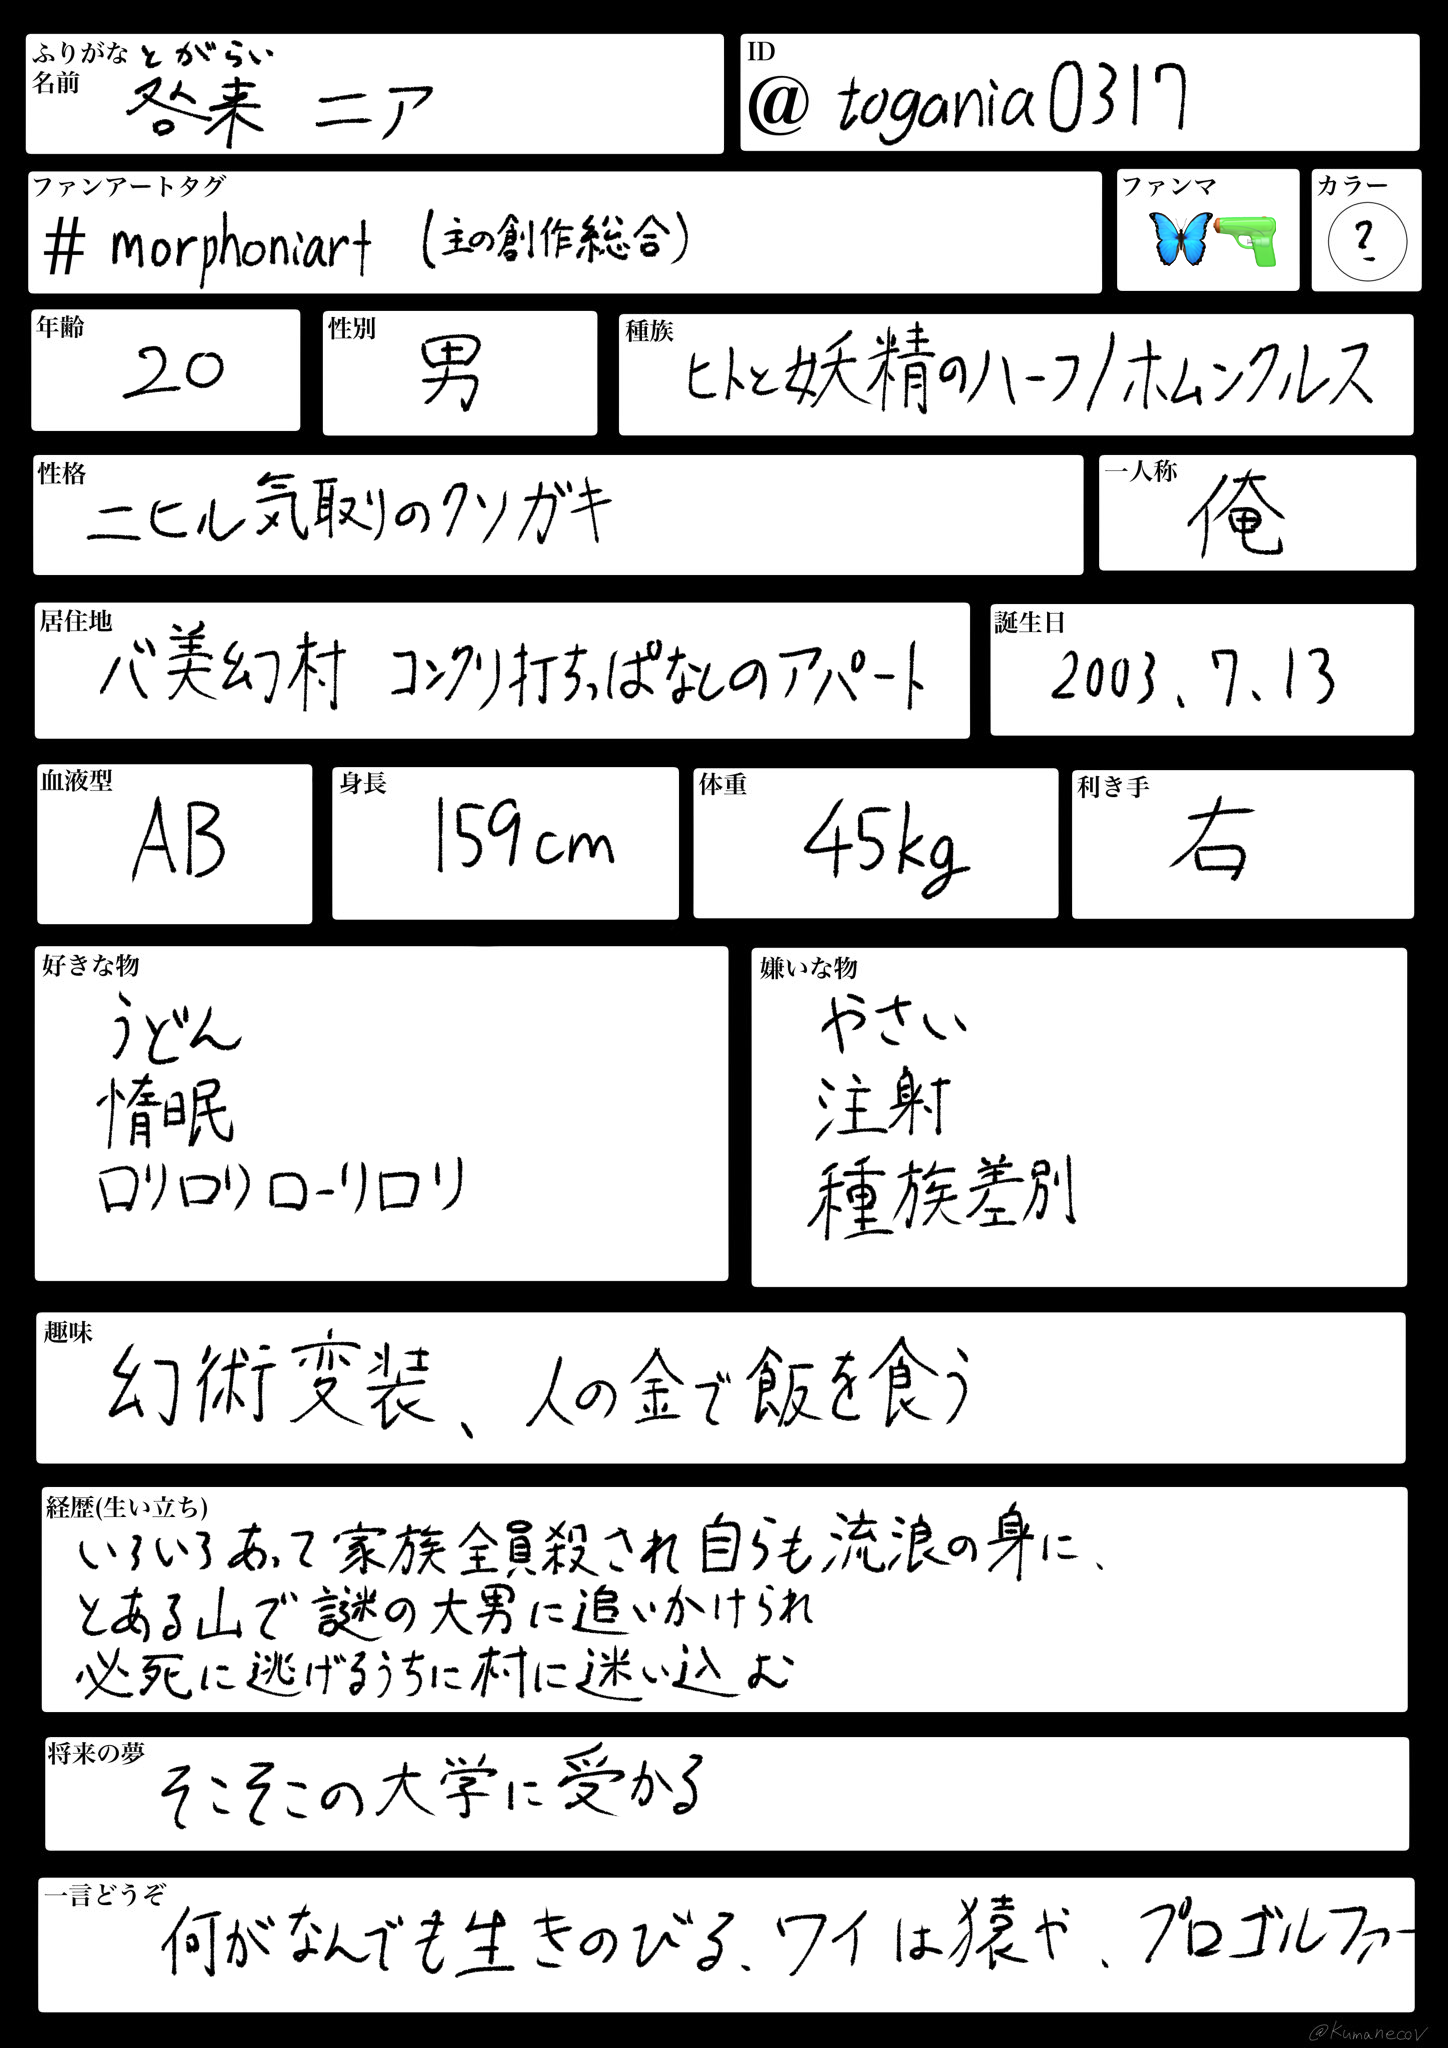 ふりがな とがらい
名前 咎来 ニア
ID
@ togania0317
ファンアートタグ
# morphoniart (主の創作総合)
ファンマ
カラー
?
年齢
20
性別
男
種族
ヒトと妖精のハーフ/ホムンクルス
性格
ニヒル気取りのクソガキ
一人称
俺
居住地
バ美幻村 コンクリ打ちっぱなしのアパート
誕生日
2003.7.13
血液型
AB
身長
159cm
体重
45kg
利き手
右
好きな物
うどん
惰眠
ロリロリローリロリ
嫌いな物
やさい
注射
種族差別
趣味
幻術変装、人の金で飯を食う
経歴(生い立ち)
いろいろあって家族全員殺され自らも流浪の身に、
とある山で謎の大男に追いかけられ
必死に逃げるうちに村に迷い込む
将来の夢
そこそこの大学に受かる
一言どうぞ
何がなんでも生きのびる、ワイは猿や、プロゴルファー
@KumanecoV